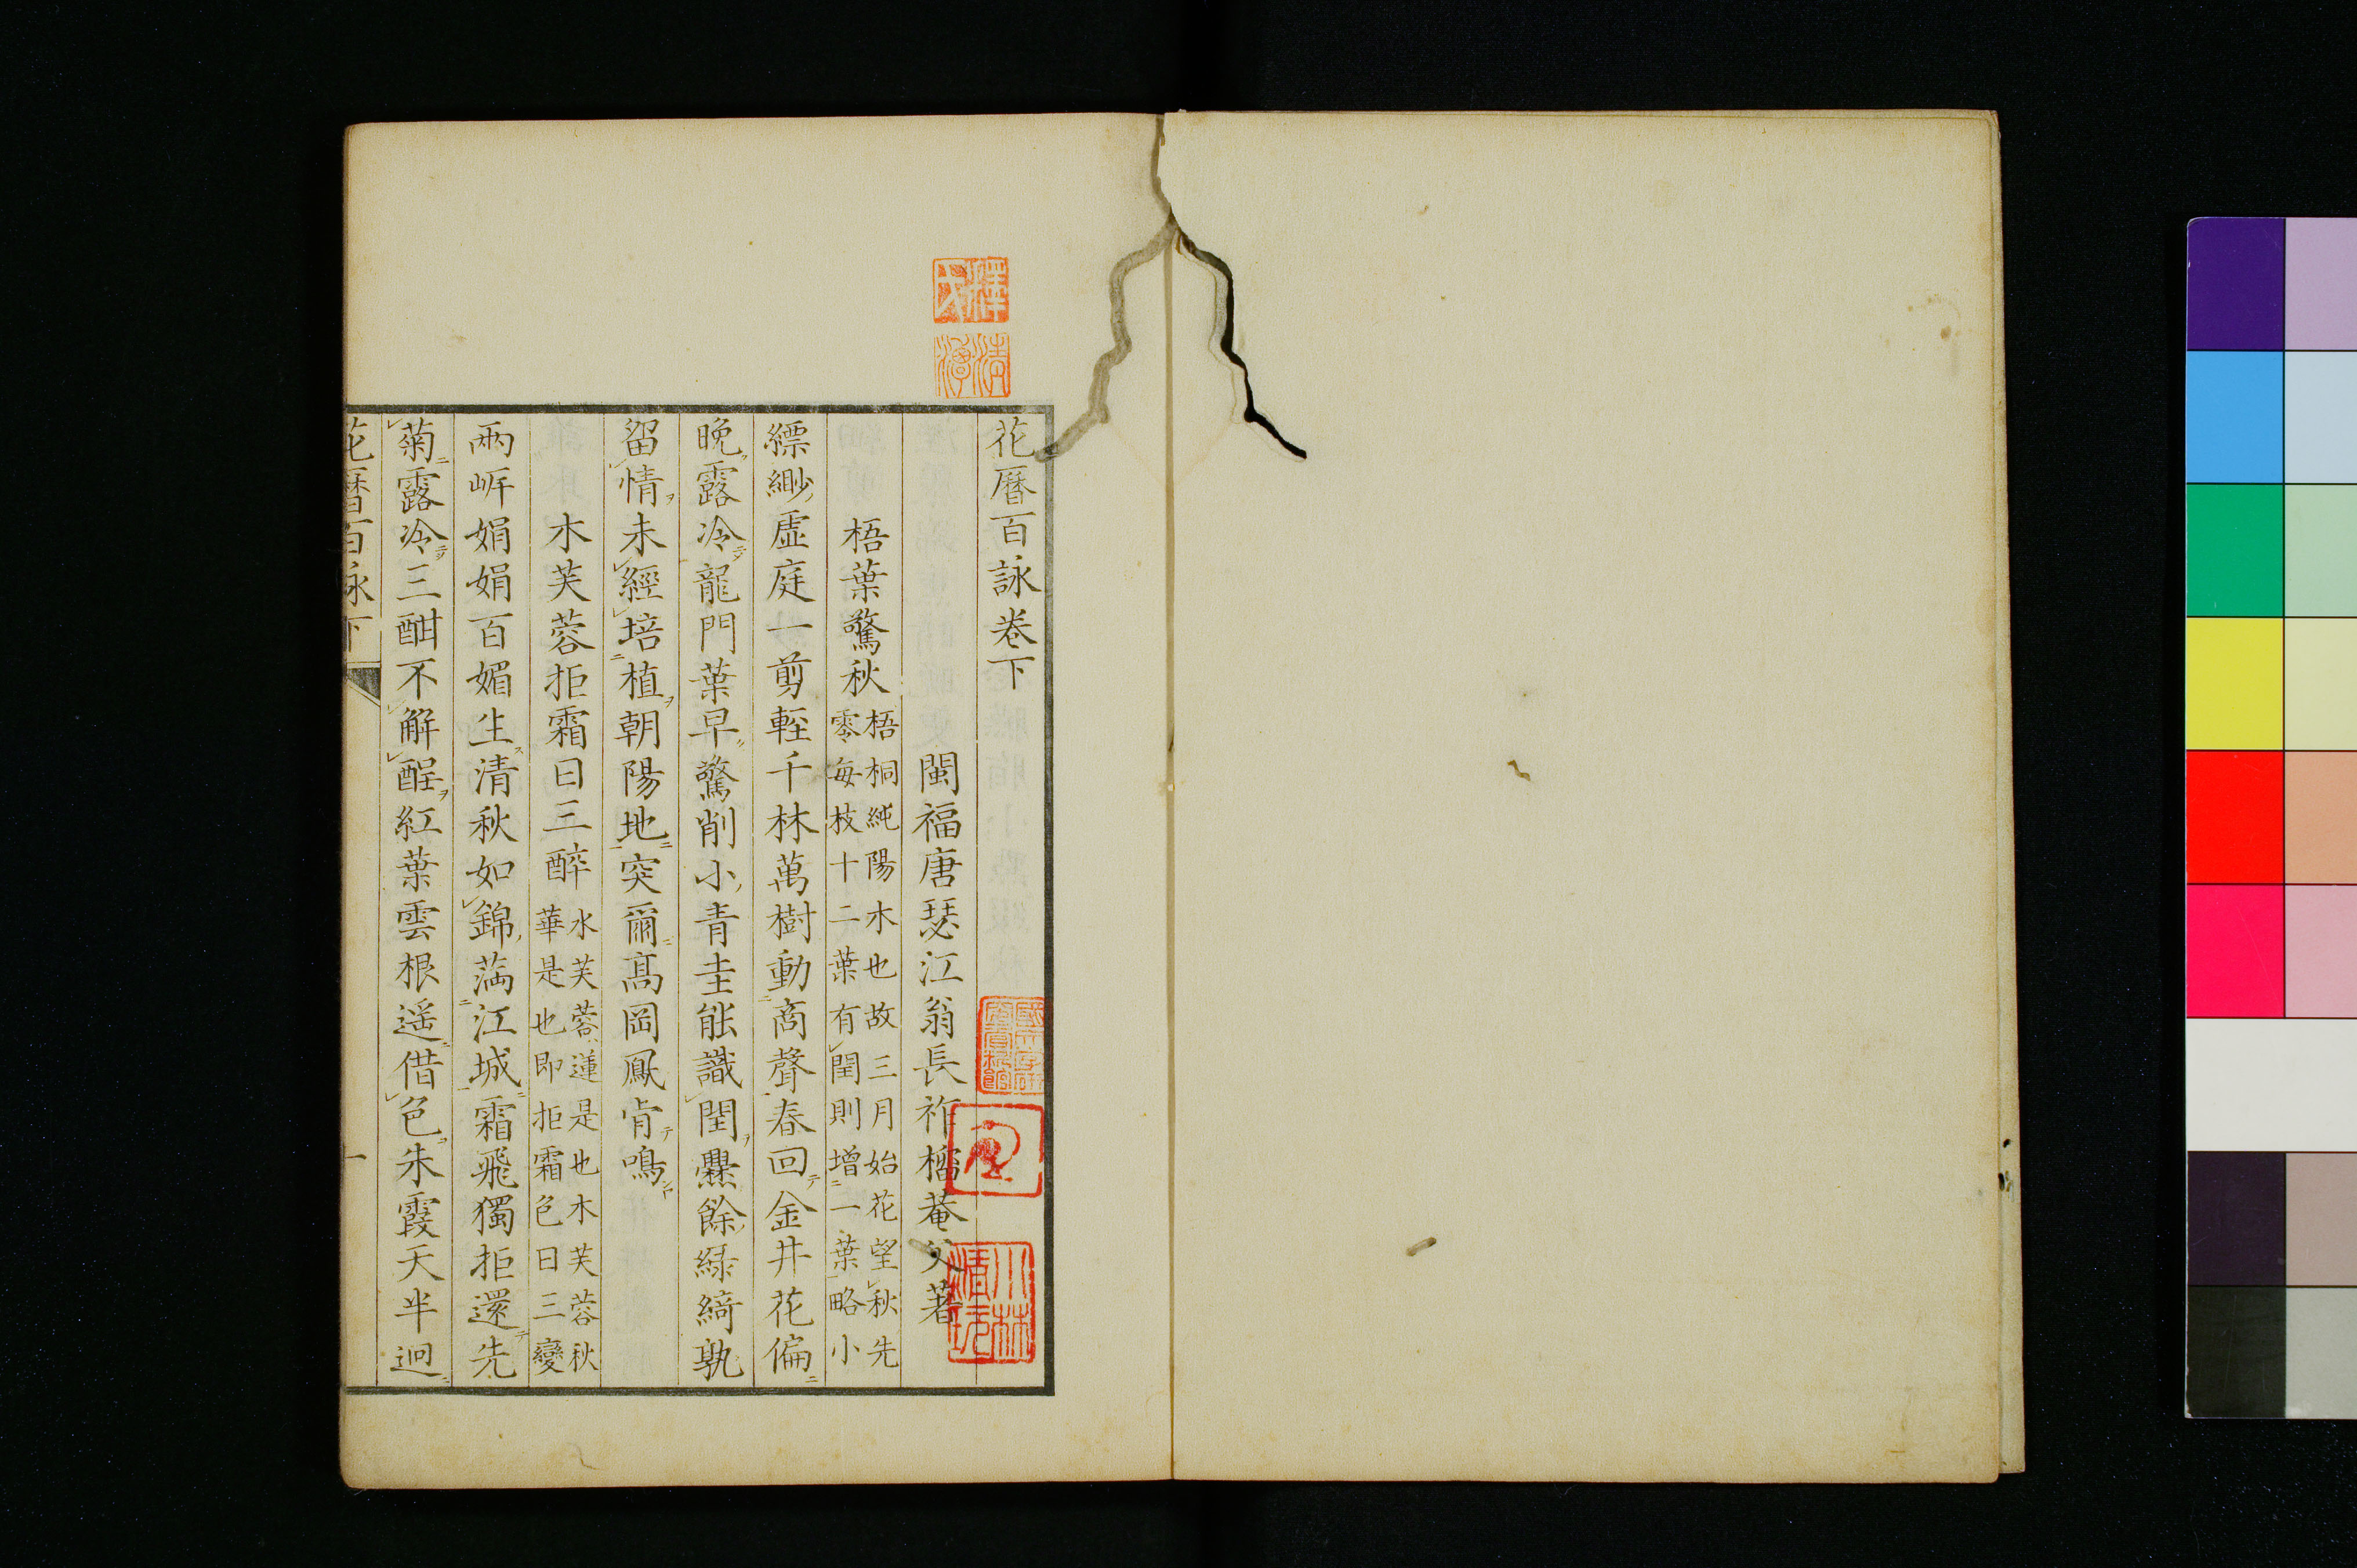 花曆百詠卷下
閩福唐瑟江翁長祚榴菴父著
梧葉驚秋
梧桐純陽木也故三月始花望秋先
零每枝十二葉有閏則增一葉略小
縹緲虛庭一剪輕千林萬樹動商聲春回金井花偏
晚露冷龍門葉早驚削小青圭能識閏爨餘綠綺孰
留情未經培植朝陽地突爾高岡鳳肯鳴
木芙蓉拒霜曰三醉
水芙蓉蓮是也木芙蓉秋
華是也即拒霜色日三變
兩岸娟娟百媚生清秋如錦滿江城霜飛獨拒還先
菊露冷三酣不解酲紅葉雲根遥借色朱霞天半迥
花曆百詠下
一
釋氏
清潭
小林